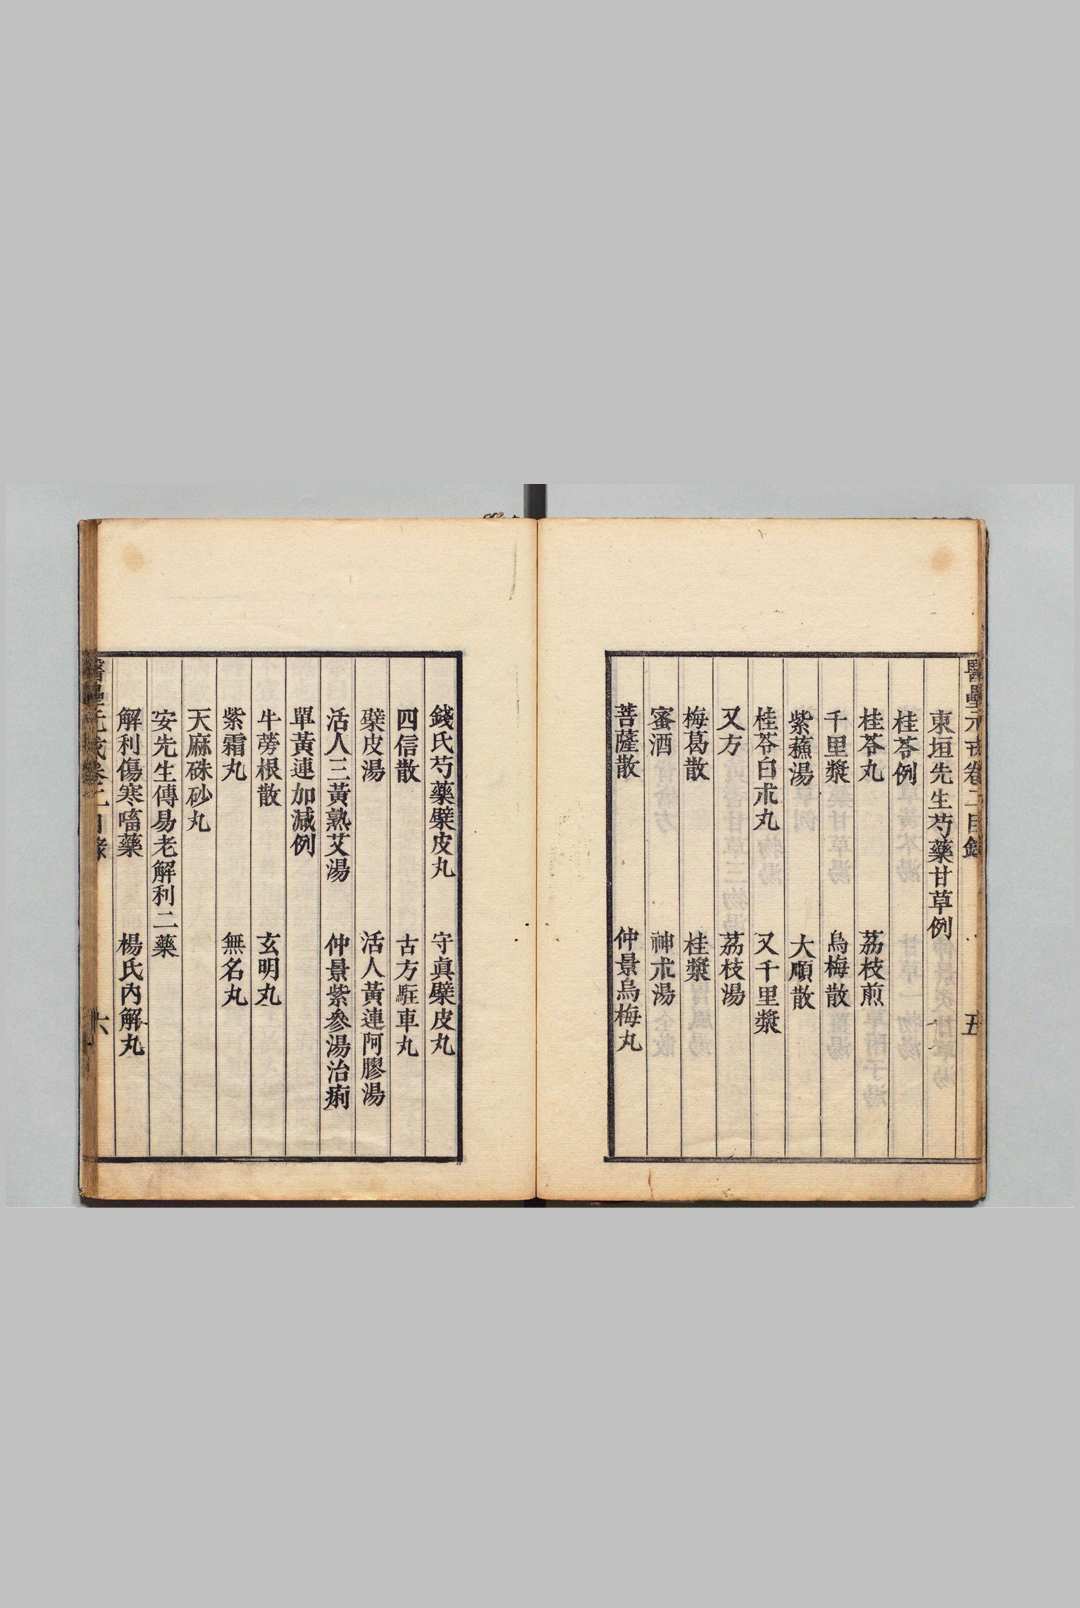 醫壘元戎卷二目錄 五
東垣先生芍藥甘草例
桂苓例
桂苓丸 荔枝煎
千里漿 烏梅散
紫蘓湯 大順散
桂苓白朮丸 又千里漿
又方 荔枝湯
梅葛散 桂漿
蜜酒 神朮湯
菩薩散 仲景烏梅丸
錢氏芍藥檗皮丸 守眞檗皮丸
四信散 古方駐車丸
檗皮湯 活人黃連阿膠湯
活人三黃熟艾湯 仲景紫參湯治痢
單黃連加減例
牛蒡根散 玄明丸
紫霜丸 無名丸
天麻硃砂丸
安先生傳易老解利二藥
解利傷寒㗜藥 楊氏內解丸
醫壘元戎卷二目錄 六